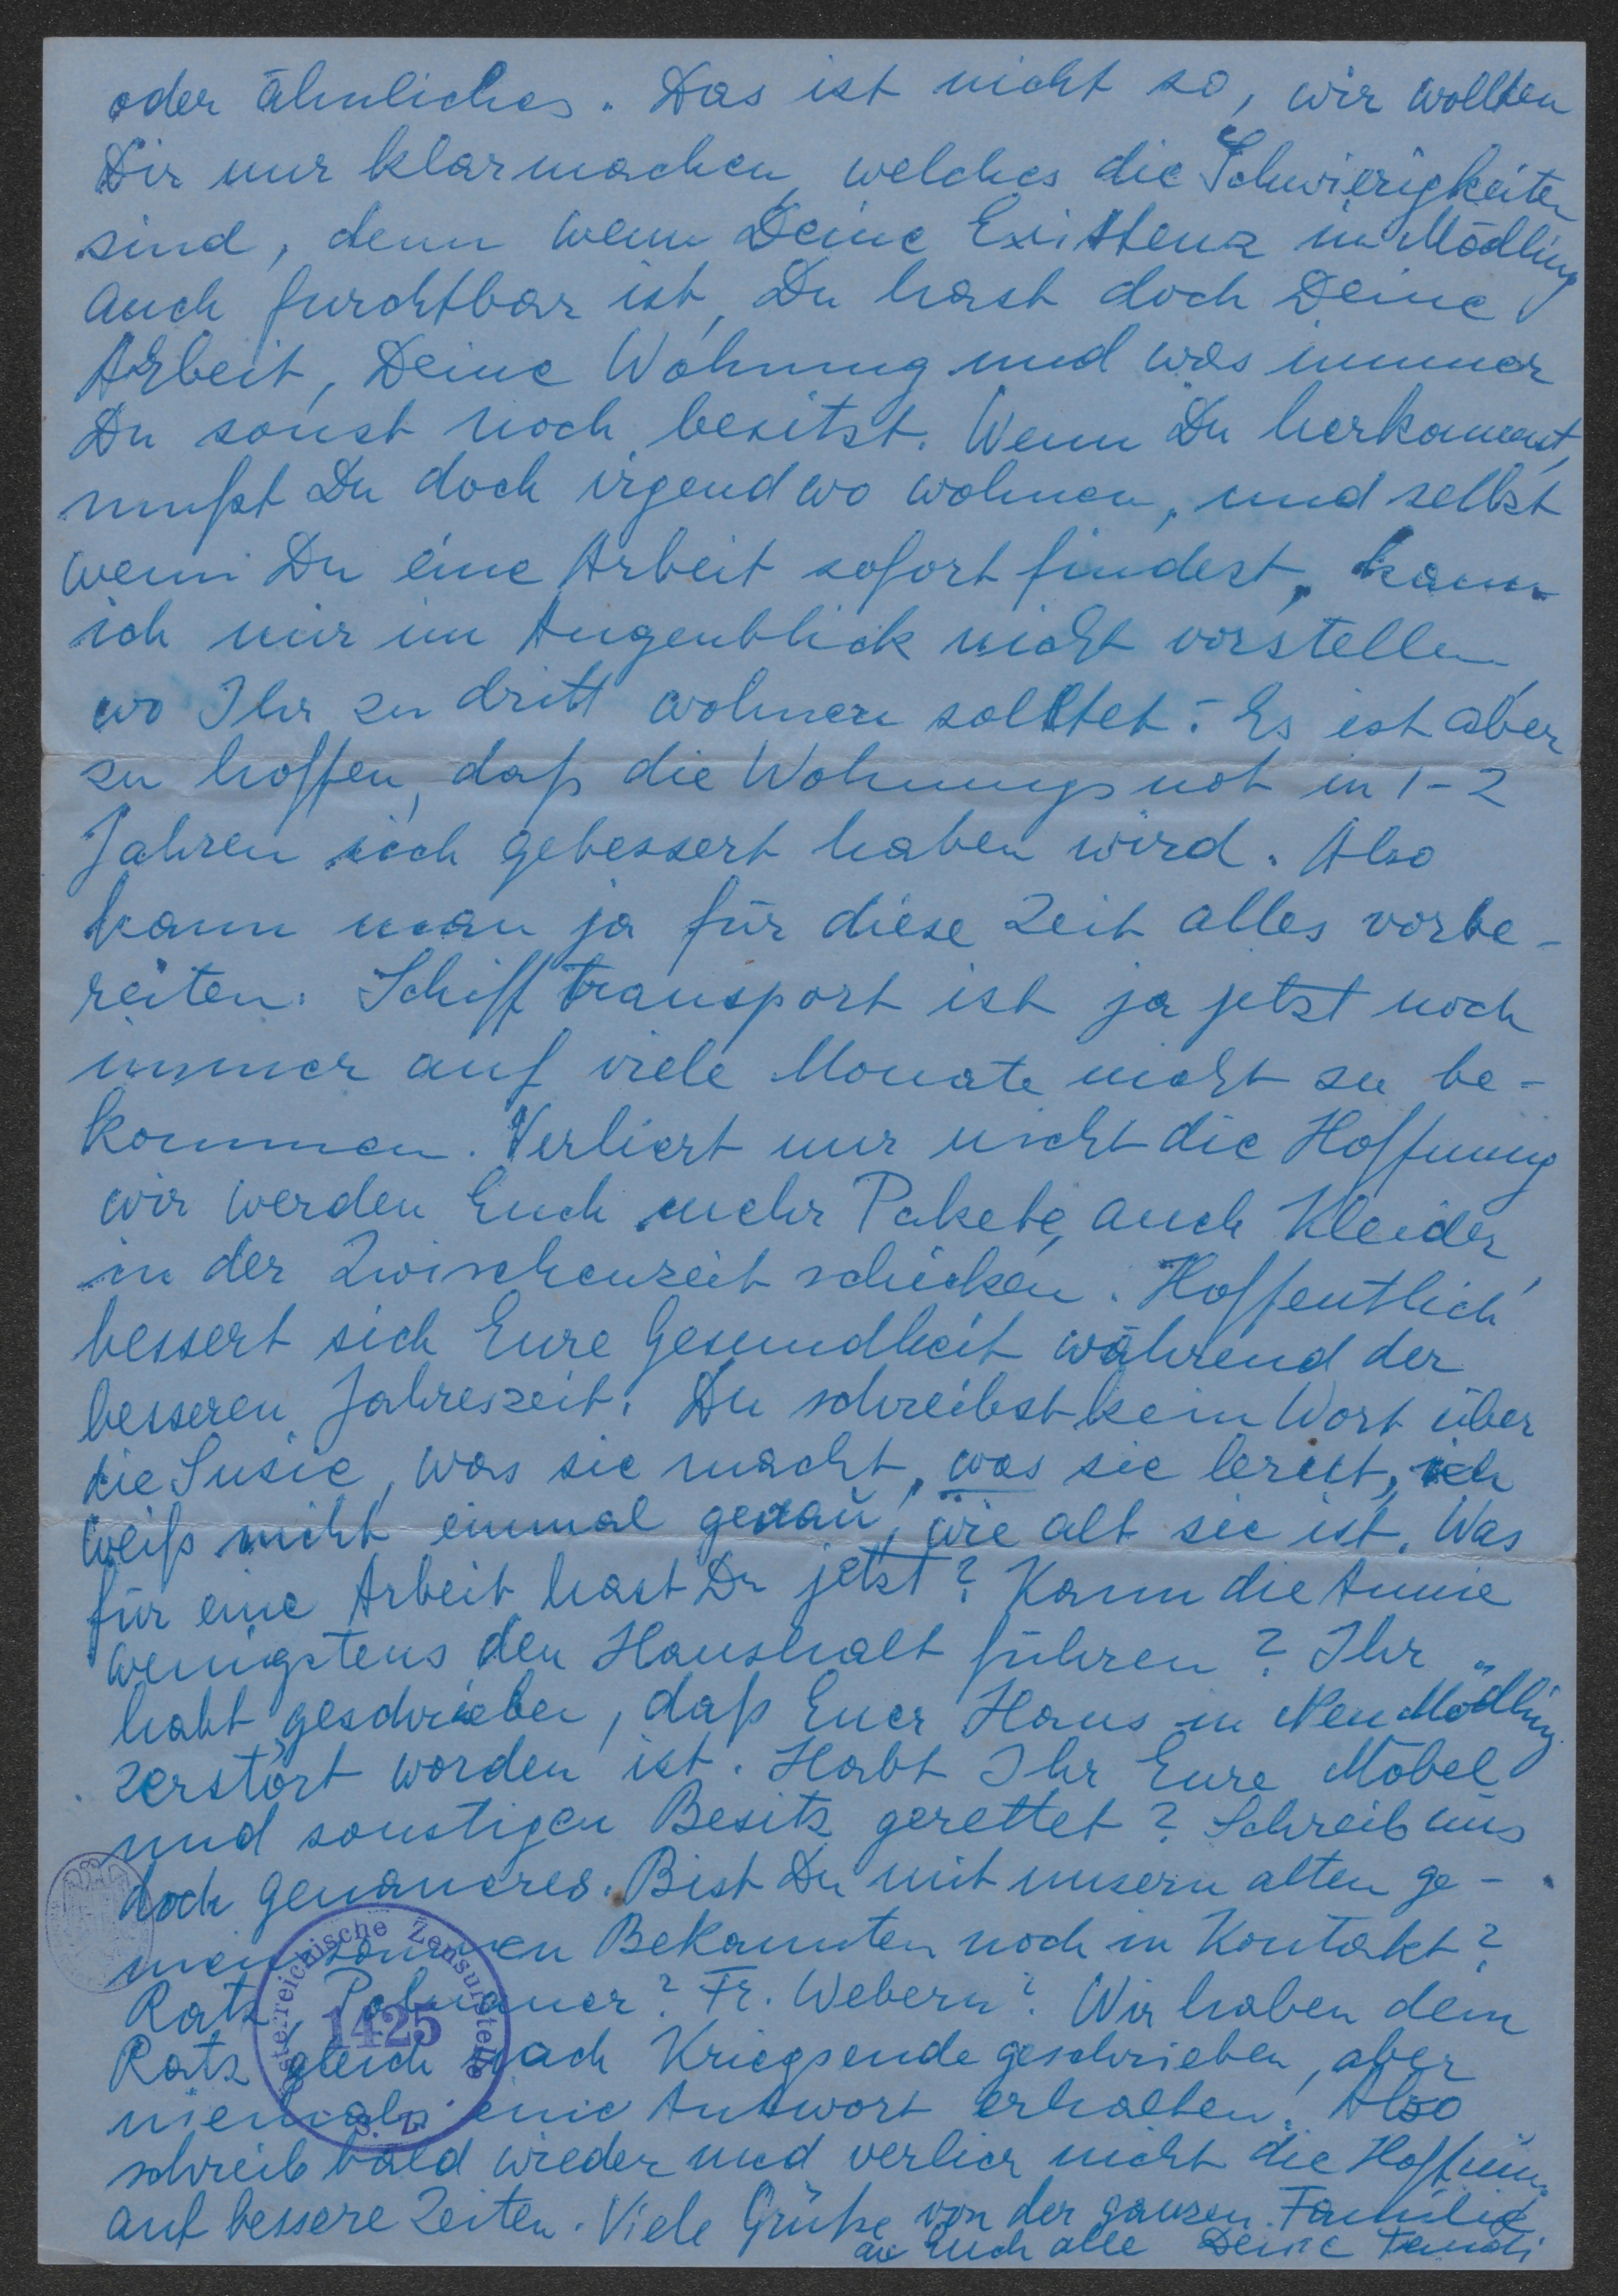 oder ähnliches. Das ist nicht so, wir wollten
Dir nur klarmachen, welches die Schwierigkeiten
sind, denn wenn Deine Existenz in Mödling
auch furchtbar ist, Du hast doch Deine
Arbeit, Deine Wohnung und was immer
Du sonst noch besitzt. Wenn Du herkommst,
mußt Du doch irgendwo wohnen, und selbst
wenn Du eine Arbeit sofort findest, kann
ich mir im Augenblick nicht vorstellen
wo Ihr zu dritt wohnen solltet. Es ist aber
zu hoffen, daß die Wohnungsnot in 1-2
Jahren sich gebessert haben wird. Also
kann man ja für diese Zeit alles vorbe-
reiten. Schifftransport ist ja jetzt noch
immer auf viele Monate nicht zu be-
kommen. Verliert nur nicht die Hoffnung
wir werden Euch mehr Pakete, auch Kleider
in der Zwischenzeit schicken. Hoffentlich
bessert sich Eure Gesundheit während der
besseren Jahreszeit. Du schreibst kein Wort über
die Susie, was sie macht, was sie lernt, ich
weiß nicht einmal genau, wie alt sie ist. Was
für eine Arbeit hast Du jetzt? Kann die Annie
wenigstens den Haushalt führen? Ihr
habt geschrieben, daß Euer Haus in Neu Mödling
zerstört worden ist. Habt Ihr Eure Möbel
und sonstigen Besitz gerettet? Schreib uns
doch genaueres. Bist Du mit unsern alten ge-
meinsamen Bekannten noch in Kontakt?
Ratz, Polnauer? Fr. Webern? Wir haben dem
Ratz gleich nach Kriegsende geschrieben, aber
niemals eine Antwort erhalten. Also
schreib bald wieder und verlier nicht die Hoffnung
auf bessere Zeiten. Viele Grüße von der ganzen Familie
an Euch alle Deine
Österreichische Zensurstelle
1425